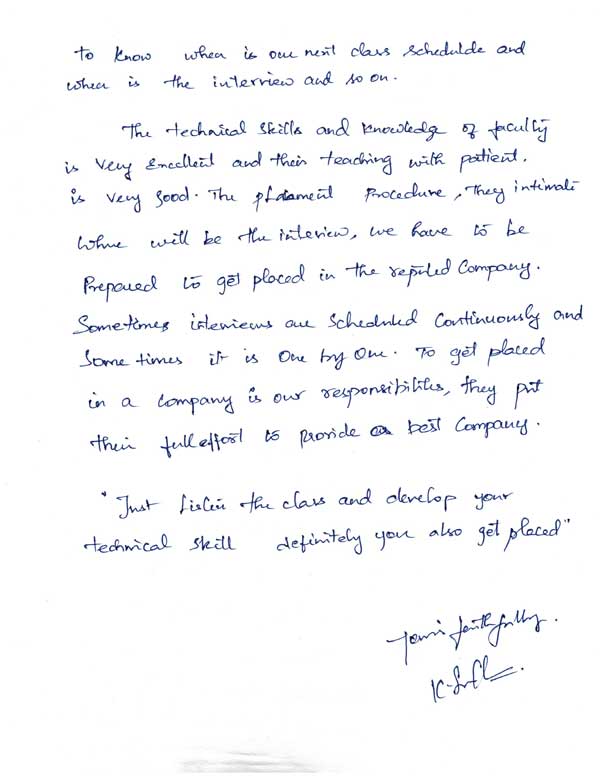 to know when is our next class schedulde and
when is the interview and so on.
The technical skills and knowledge of faculty
is very Excellent and their teaching with patient.
is very good. The placement Procedure, They intimate
whne will be the interview, we have to be
Prepared to get placed in the reputed Company.
Sometimes interviews are Scheduled Continuously and
Some times it is One by One. To get placed
in a Company is our responsibilites, they put
their full effort to provide best Company.
"Just Listen the class and develop your
technical skill definitely you also get placed"
Yours faithfully.